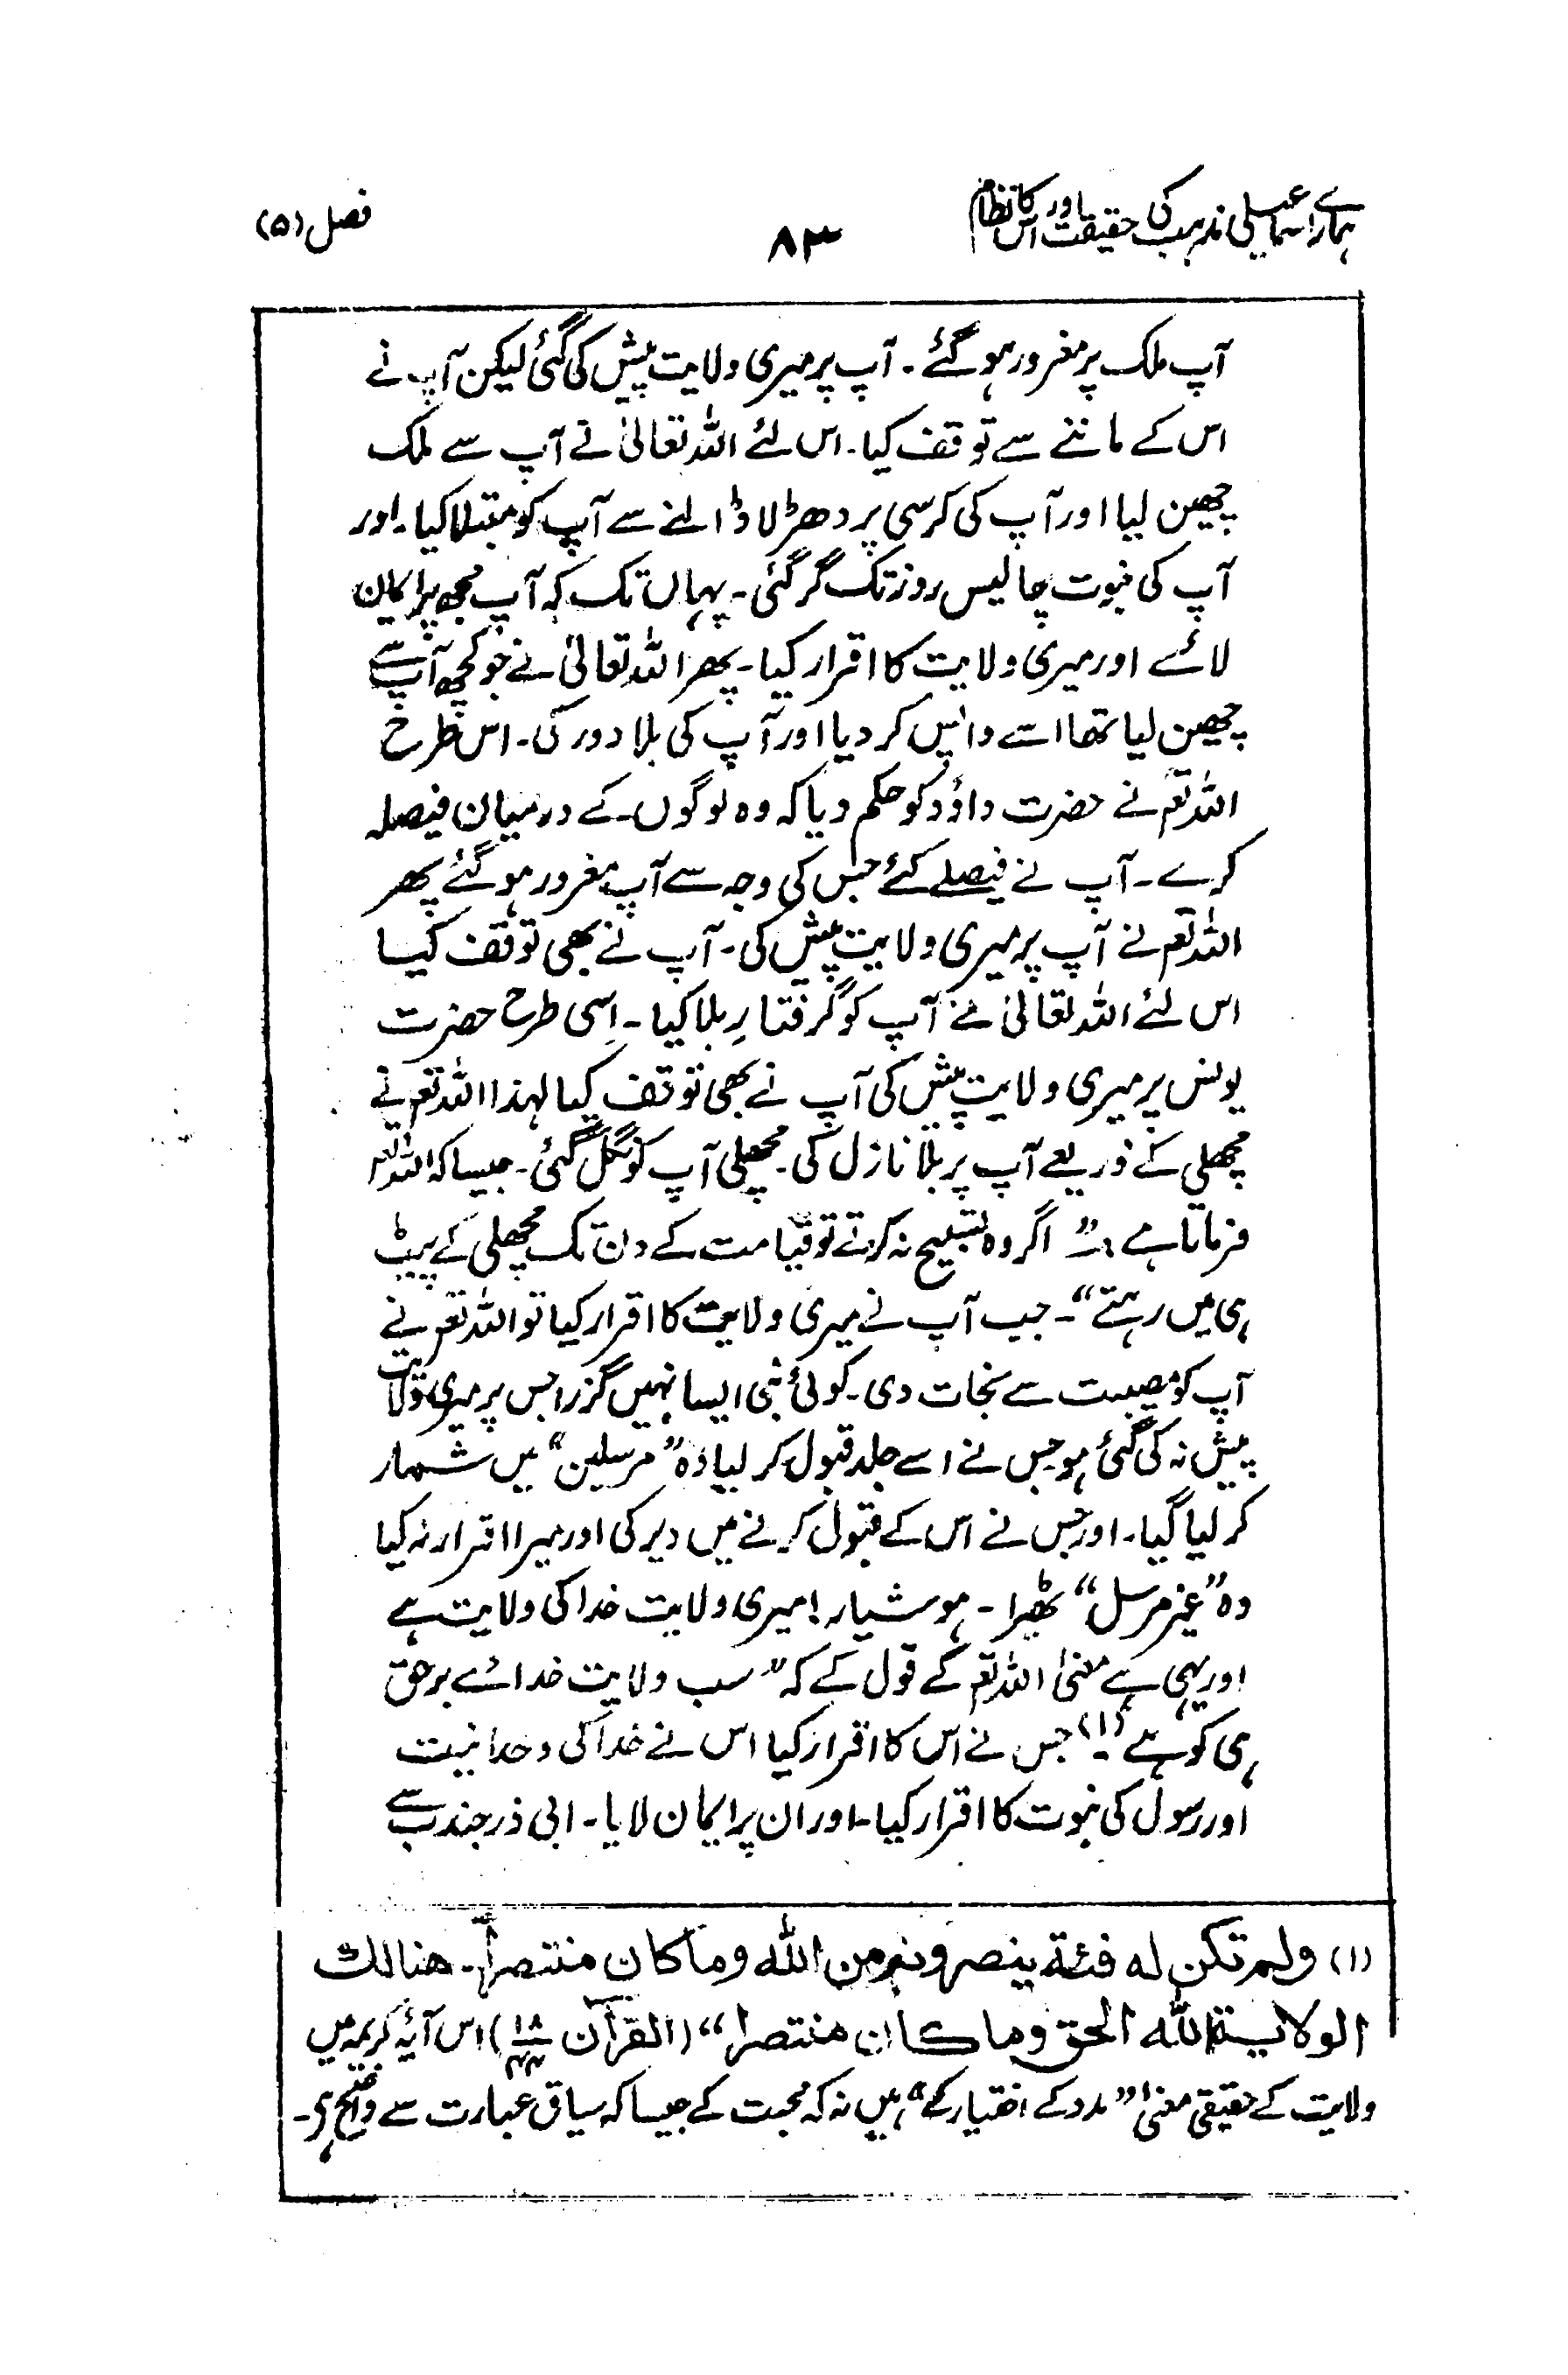 ہمارے اسماعیلی مذہب کی حقیقت اور اس کا نظام
۸۳
فصل (۵)
آپ ملک پر مغرور ہو گئے ۔ آپ پر میری ولایت پیش کی گئی لیکن آپ نے
اس کے ماننے سے توقف کیا ۔ اس لئے اللہ تعالیٰ نے آپ سے ملک
چھین لیا اور آپ کی کرسی پر دھڑ لا ڈالنے سے آپ کو مبتلا کیا ۔ اور
آپ کی نبوت چالیس روز تک گر گئی ۔ یہاں تک کہ آپ مجھ پر ایمان
لائے اور میری ولایت کا اقرار کیا ۔ پھر اللہ تعالیٰ نے جو کچھ آپ سے
چھین لیا تھا اسے واپس کر دیا اور آپ کی بلا دور کی ۔ اس طرح
اللہ تعم نے حضرت داؤد کو حکم دیا کہ وہ لوگوں کے درمیان فیصلہ
کرے ۔ آپ نے فیصلے کئے جس کی وجہ سے آپ مغرور ہو گئے پھر
اللہ تعم نے آپ پر میری ولایت پیش کی ۔ آپ نے بھی توقف کیا
اس لئے اللہ تعالیٰ نے آپ کو گرفتارِ بلا کیا ۔ اِسی طرح حضرت
یونس پر میری ولایت پیش کی آپ نے بھی توقف کیا لہذا اللہ تعم نے
مچھلی کے ذریعے آپ پر بلا نازل کی ۔ مچھلی آپ کو نگل گئی ۔ جیسا کہ اللہ تعم
فرماتا ہے :۔ ” اگر وہ تسبیح نہ کرتے تو قیامت کے دن تک مچھلی کے پیٹ
ہی میں رہتے “ ۔ جب آپ نے میری ولایت کا اقرار کیا تو اللہ تعم نے
آپ کو مصیبت سے نجات دی ۔ کوئی نبی ایسا نہیں گزرا جس پر میری ولایت
پیش نہ کی گئی ہو جس نے اسے جلد قبول کر لیا وہ ” مرسلین “ میں شمار
کر لیا گیا ۔ اور جس نے اس کے قبول کرنے میں دیر کی اور میرا اقرار نہ کیا
وہ ” غیر مرسل “ ٹھیرا ۔ ہوشیار ! میری ولایت خدا کی ولایت ہے
اور یہی ہے معنیٰ اللہ تعم کے قول کے کہ ” سب ولایت خدائے برحق
ہی کو ہے “ (۱) ۔ جس نے اس کا اقرار کیا اس نے خدا کی وحدانیت
اور رسول کی نبوت کا اقرار کیا ۔ اور ان پر ایمان لایا ۔ ابی ذر جندب سے
(۱) ولم تکن له فئة ینصرونه من الله وما کان منتصراً ۔ هنالك
الولایة لله الحق وما کان منتصرا “ (القرآن ۱۸/۴۴) اس آیۂ کریمہ میں
ولایت کے حقیقی معنیٰ ” مدد کے اختیار کے “ ہیں نہ کہ محبت کے جیسا کہ سیاق عبارت سے واضح ہے ۔